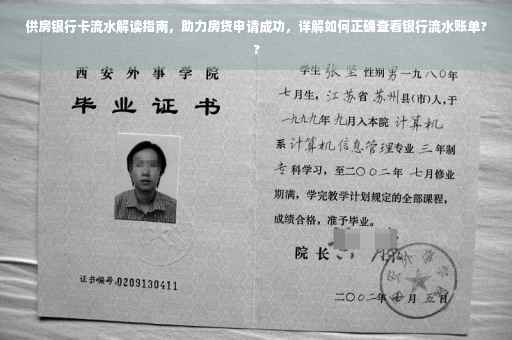 供房银行卡流水解读指南，助力房贷申请成功，详解如何正确查看银行流水账单？
？
西安外事学院
毕业证书
证书编号:0209130411
学生 张 坚 性别 男 一九八〇年
七月生，江苏省 苏州县(市)人,于
一九九九年 九月入本院 计算机
系 计算机信息管理专业 三 年制
专科学习，至二〇〇二年 七月修业
期满，学完教学计划规定的全部课程，
成绩合格，准予毕业。
院长
二〇〇二年 七 月 五 日